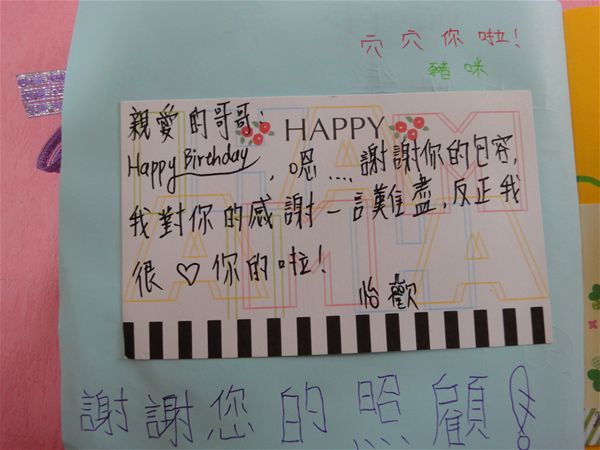 穴穴你啦!
豬咪
HAPPY
親愛的哥哥:
Happy Birthday,嗯....謝謝你的包容,
我對你的感謝一言難盡,反正我
很♡你的啦!
怡歡
謝謝您的照顧!